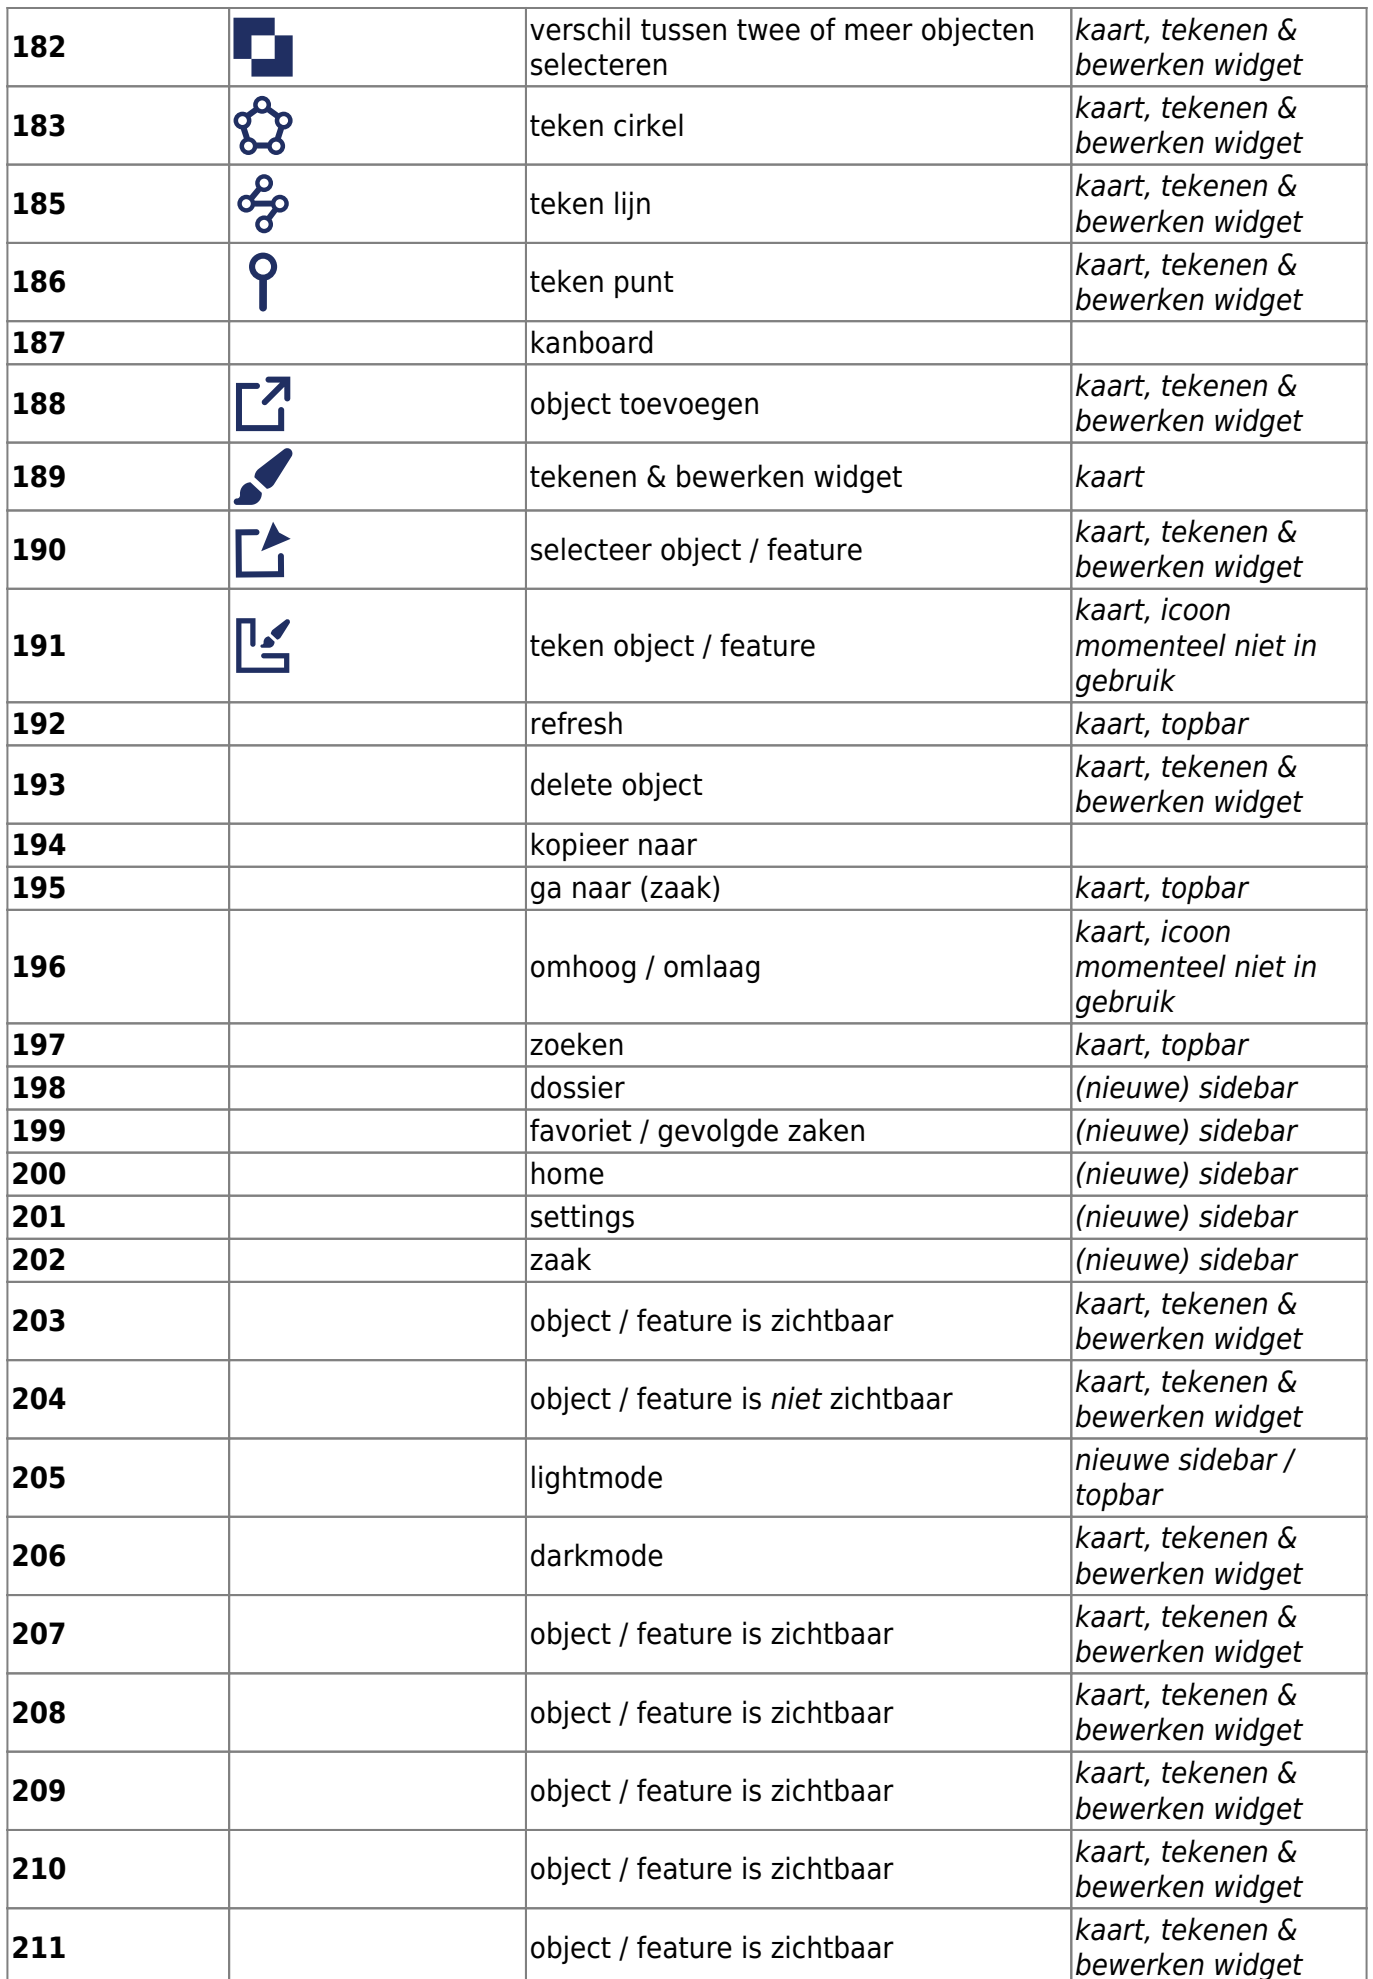 182 verschil tussen twee of meer objecten kaart, tekenen &
selecteren bewerken widget
183 teken cirkel kaart, tekenen &
bewerken widget
185 teken lijn kaart, tekenen &
bewerken widget
186 teken punt kaart, tekenen &
bewerken widget
187 kanboard
188 object toevoegen kaart, tekenen &
bewerken widget
189 tekenen & bewerken widget kaart
190 selecteer object / feature kaart, tekenen &
bewerken widget
191 teken object / feature kaart, icoon
momenteel niet in
gebruik
192 refresh kaart, topbar
193 delete object kaart, tekenen &
bewerken widget
194 kopieer naar
195 ga naar (zaak) kaart, topbar
196 omhoog / omlaag kaart, icoon
momenteel niet in
gebruik
197 zoeken kaart, topbar
198 dossier (nieuwe) sidebar
199 favoriet / gevolgde zaken (nieuwe) sidebar
200 home (nieuwe) sidebar
201 settings (nieuwe) sidebar
202 zaak (nieuwe) sidebar
203 object / feature is zichtbaar kaart, tekenen &
bewerken widget
204 object / feature is niet zichtbaar kaart, tekenen &
bewerken widget
205 lightmode nieuwe sidebar /
topbar
206 darkmode kaart, tekenen &
bewerken widget
207 object / feature is zichtbaar kaart, tekenen &
bewerken widget
208 object / feature is zichtbaar kaart, tekenen &
bewerken widget
209 object / feature is zichtbaar kaart, tekenen &
bewerken widget
210 object / feature is zichtbaar kaart, tekenen &
bewerken widget
211 object / feature is zichtbaar kaart, tekenen &
bewerken widget